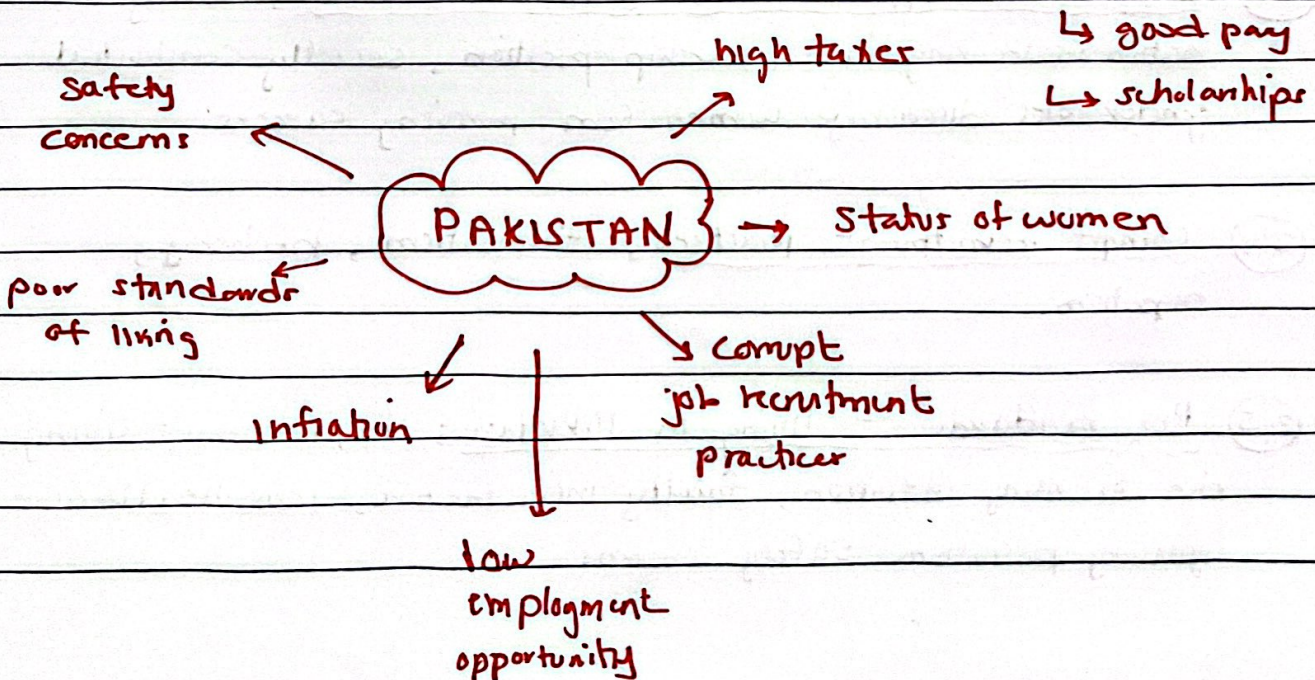 ↳ good pay
↳ scholarships
high taxes
Safety
concerns
PAKISTAN
Status of women
poor standards
of living
Inflation
Corrupt
job recruitment
practices
low
employment
opportunity